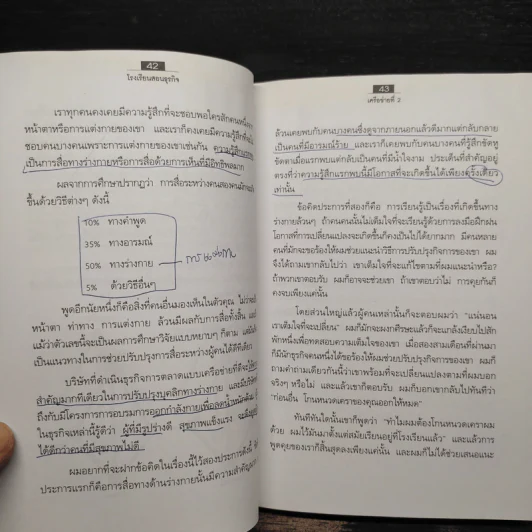 42
โรงเรียนสอนธุรกิจ
เราทุกคนคงเคยมีความรู้สึกที่จะชอบพอใครสักคนหนึ่ง
หน้าตาหรือการแต่งกายของเขา และเราก็คงเคยมีความรู้สึกที่
ชอบคนบางคนเพราะการแต่งกายของเขาเช่นกัน ความรู้สึกแรก
เป็นการสื่อทางร่างกายหรือการสื่อด้วยการเห็นที่มีอิทธิพลมาก
ผลจากการศึกษาปรากฏว่า การสื่อระหว่างคนสองคน
ขึ้นด้วยวิธีต่างๆ ดังนี้
10% ทางคำพูด
35% ทางอารมณ์
50% ทางร่างกาย
5% ด้วยวิธีอื่นๆ
พูดอีกนัยหนึ่งก็คือสิ่งที่คนอื่นมองเห็นในตัวคุณ ไม่ว่า
หน้าตา ท่าทาง การแต่งกาย ล้วนมีผลกับการสื่อทั้งสิ้น
แม้ว่าตัวเลขนี้จะเป็นผลการศึกษาวิจัยแบบหยาบๆ ก็ตาม
เป็นแนวทางในการช่วยปรับปรุงการสื่อระหว่างผู้คนได้ดีทีเดียว
บริษัทที่ดำเนินธุรกิจการตลาดแบบเครือข่ายที่ดีจะ
สำคัญมากทีเดียวในการปรับปรุงบุคลิกทางร่างกาย และมีบริษัท
ถึงกับมีโครงการการอบรมการออกกำลังกายเพื่อลดน้ำหนัก
ในธุรกิจเหล่านี้รู้ดีว่า ผู้ที่มีรูปร่างดี สุขภาพแข็งแรง จะ
ได้ดีกว่าคนที่มีสุขภาพไม่ดี
ผมอยากที่จะฝากข้อคิดในเรื่องนี้ไว้สองประการดังนี้
ประการแรกก็คือการสื่อทางด้านร่างกายนั้นมีความสำคัญ
43
เครือข่ายที่ 2
ล้วนเคยพบกับคนบางคนซึ่งดูจากภายนอกแล้วดีมากแต่กลับกลาย
เป็นคนที่มีอารมณ์ร้าย และเราก็เคยพบกับคนบางคนที่รู้สึกขัดหู
ขัดตาเมื่อแรกพบแต่กลับเป็นคนที่มีน้ำใจงาม ประเด็นที่สำคัญอยู่
ตรงที่ว่าความรู้สึกแรกพบนี้มีโอกาสที่จะเกิดขึ้นได้เพียงครั้งเดียว
เท่านั้น
ข้อคิดประการที่สองก็คือ การเรียนรู้เป็นเรื่องที่เกิดขึ้นทาง
ร่างกายล้วนๆ ถ้าคนคนนั้นไม่เต็มใจที่จะเรียนรู้ด้วยการลงมือฝึกฝน
โอกาสที่การเปลี่ยนแปลงจะเกิดขึ้นก็คงเป็นไปได้ยากมาก มีคนหลาย
คนที่มักจะขอร้องให้ผมช่วยแนะนำวิธีการปรับปรุงกิจการของเขา ผม
จึงได้ถามเขากลับไปว่า เขาเต็มใจที่จะแก้ไขตามที่ผมแนะนำหรือ?
ถ้าพวกเขาตอบรับ ผมก็อาจจะช่วยเขา ถ้าเขาตอบว่าไม่ การคุยกันก็
คงจบเพียงแค่นั้น
โดยส่วนใหญ่แล้วผู้คนเหล่านั้นก็จะตอบผมว่า "แน่นอน
เราเต็มใจที่จะเปลี่ยน" ผมก็มักจะผงกศีรษะแล้วก็จะแกล้งเงียบไปสัก
พักหนึ่งเพื่อทดสอบความเต็มใจของเขา เมื่อสองสามเดือนที่ผ่านมา
ก็มีนักธุรกิจคนหนึ่งได้ขอร้องให้ผมช่วยปรับปรุงกิจการของเขา ผมก็
ถามคำถามเดียวกันนี้ว่าเขาพร้อมที่จะเปลี่ยนแปลงตามที่ผมบอก
จริงๆ หรือไม่ และแล้วเขาก็ตอบรับ ผมก็บอกเขากลับไปทันทีว่า
"ก่อนอื่น โกนหนวดเคราของคุณออกให้หมด"
ทันทีทันใดนั้นเขาก็พูดว่า "ทำไมผมต้องโกนหนวดเคราผม
ด้วย ผมไว้มันมาตั้งแต่สมัยเรียนอยู่ที่โรงเรียนแล้ว" และแล้วการ
พูดคุยของเราก็สิ้นสุดลงเพียงแค่นั้น และผมก็ไม่ได้ช่วยเสนอแนะ